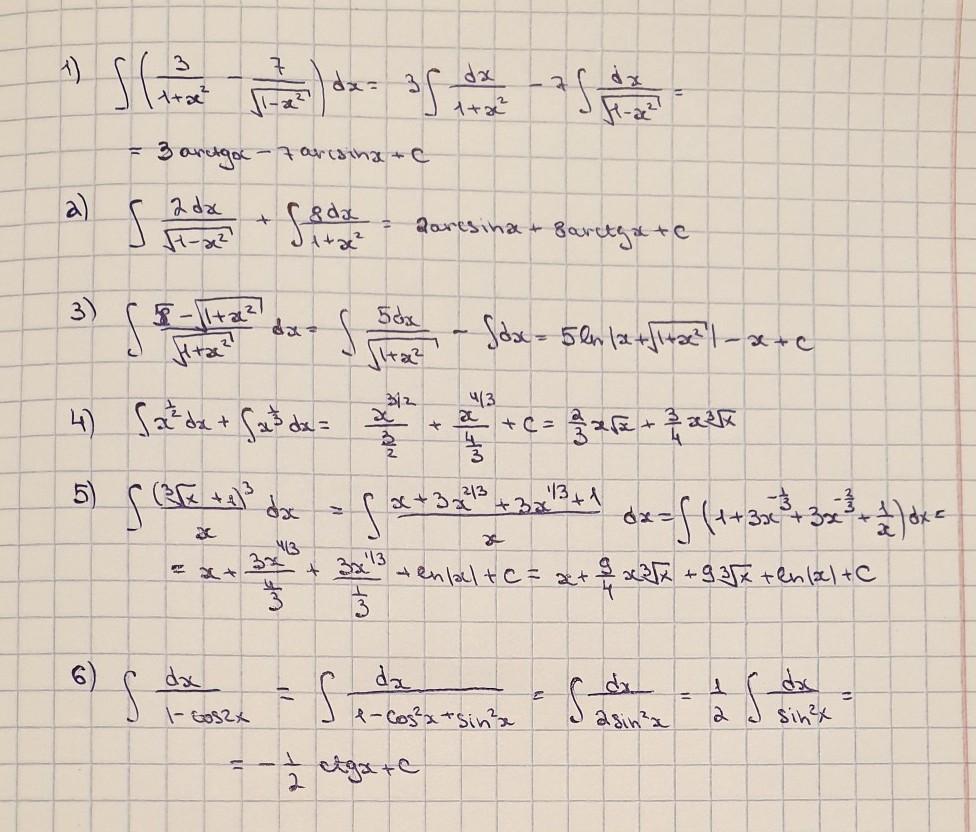 1) ∫(3/(1+x²) - 7/√(1-x²))dx = 3∫dx/(1+x²) - 7∫dx/√(1-x²) =
= 3arctgx - 7arcsinx + C
2) ∫2dx/√(1-x²) + ∫8dx/(1+x²) = 2arcsinx + 8arctgx + C
3) ∫(5-√(1+x²))/√(1+x²) dx = ∫5dx/√(1+x²) - ∫dx = 5ln|x+√(1+x²)| - x + C
4) ∫x^(1/2)dx + ∫x^(1/3)dx = x^(3/2)/(3/2) + x^(4/3)/(4/3) + C = 2/3 x√x + 3/4 x∛x
5) ∫(∛x+1)³/x dx = ∫(x+3x^(2/3)+3x^(1/3)+1)/x dx = ∫(1+3x^(-1/3)+3x^(-2/3)+1/x)dx =
= x + 3x^(4/3)/(4/3) + 3x^(1/3)/(1/3) + ln|x| + C = x + 9/4 x∛x + 9∛x + ln|x| + C
6) ∫dx/(1-cos2x) = ∫dx/(1-cos²x+sin²x) = ∫dx/(2sin²x) = 1/2 ∫dx/sin²x =
= -1/2 ctgx + C